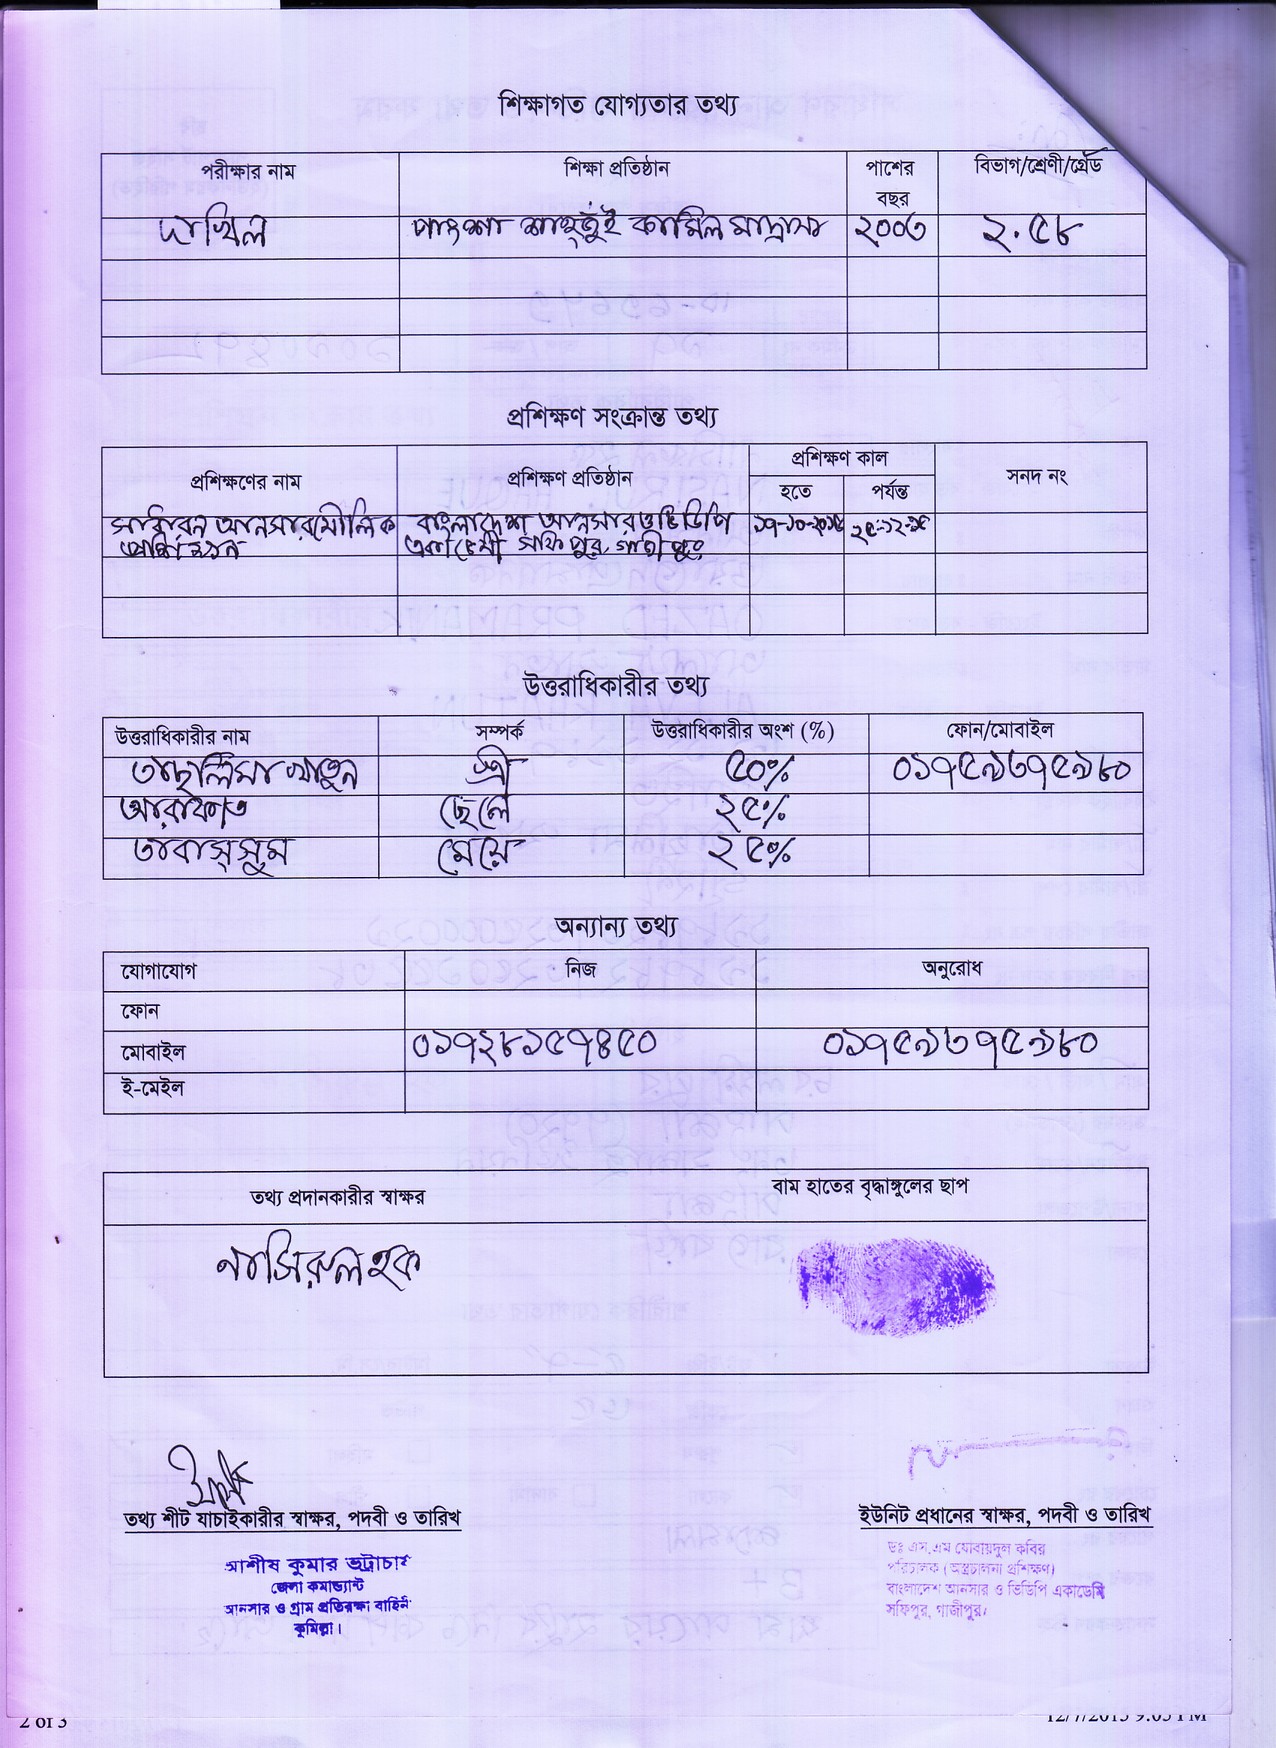 শিক্ষাগত যোগ্যতার তথ্য
পরীক্ষার নাম শিক্ষা প্রতিষ্ঠান পাশের বছর বিভাগ/শ্রেণী/গ্রেড
দাখিল পাংশা শাহ্জুঁই কামিল মাদ্রাসা ২০০৩ ২.৫৮
প্রশিক্ষণ সংক্রান্ত তথ্য
প্রশিক্ষণের নাম প্রশিক্ষণ প্রতিষ্ঠান প্রশিক্ষণ কাল সনদ নং
হতে পর্যন্ত
সাধারন আনসার মৌলিক বাংলাদেশ আনসার ও ভিডিপি ১৭-১০-২০১৫ ২৫-১২-১৫
একাডেমী সফিপুর, গাজীপুর
উত্তরাধিকারীর তথ্য
উত্তরাধিকারীর নাম সম্পর্ক উত্তরাধিকারীর অংশ (%) ফোন/মোবাইল
তাছলিমা খাতুন স্ত্রী ৫০% ০১৭৫৯৬৭৫৯৮০
আরাফাত ছেলে ২৫%
তাবাস্সুম মেয়ে ২৫%
অন্যান্য তথ্য
যোগাযোগ নিজ অনুরোধ
ফোন
মোবাইল ০১৭২৮১৫৭৪৫০ ০১৭৫৯৬৭৫৯৮০
ই-মেইল
তথ্য প্রদানকারীর স্বাক্ষর বাম হাতের বৃদ্ধাঙ্গুলের ছাপ
নাসিরুল হক
তথ্য শীট যাচাইকারীর স্বাক্ষর, পদবী ও তারিখ ইউনিট প্রধানের স্বাক্ষর, পদবী ও তারিখ
আশীষ কুমার ভট্টাচার্য
জেলা কমান্ড্যান্ট
আনসার ও গ্রাম প্রতিরক্ষা বাহিনী
কুমিল্লা।
ডঃ এস.এম যোবায়দুল কবির
পরিচালক (অস্ত্রচালনা প্রশিক্ষণ)
বাংলাদেশ আনসার ও ভিডিপি একাডেমি
সফিপুর, গাজীপুর।
2 of 3 12/7/2015 9:05 PM